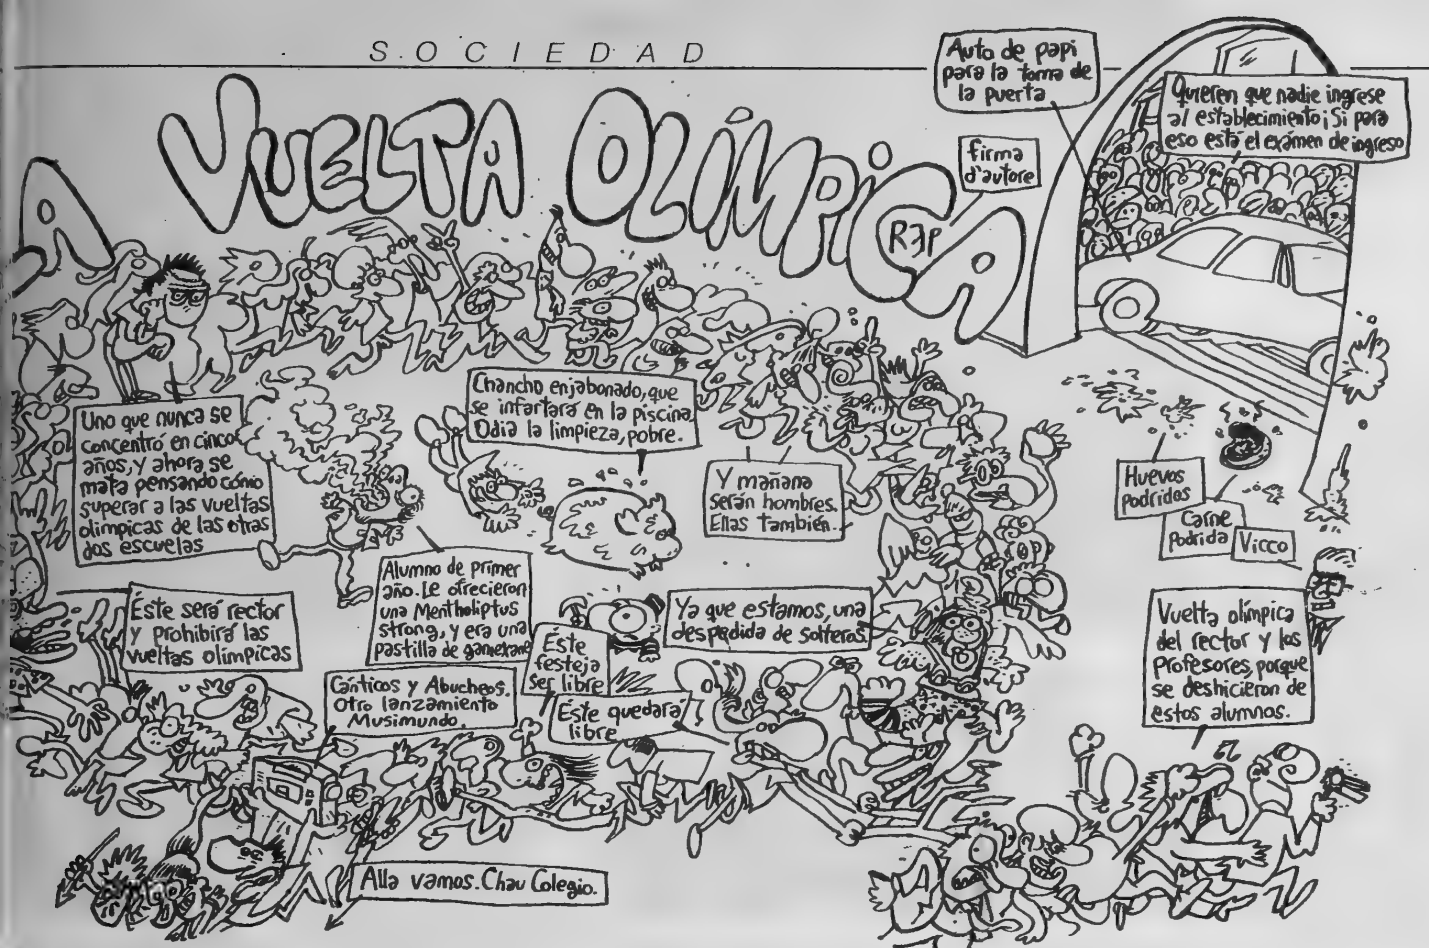 SOCIEDAD
LA VUELTA OLÍMPICA
REP
firma
d'autore
Auto de papi
para la toma de
la puerta
Quieren que nadie ingrese
al establecimiento ¡Si para
eso está el exámen de ingreso
Uno que nunca se
concentró en cinco
años, y ahora se
mata pensando cómo
superar a las vueltas
olimpicas de las otras
dos escuelas
Chancho enjabonado, que
se infartará en la piscina.
Odia la limpieza, pobre.
Y mañana
serán hombres.
Ellas también.
Huevos
podridos
Carne
podrida
Vicco
Alumno de primer
año. Le ofrecieron
una Mentholiptus
strong, y era una
pastilla de gamexane
Este será rector
y prohibirá las
vueltas olímpicas
Ya que estamos, una
despedida de solteros
Este
festeja
ser libre
Este quedará
libre
Cánticos y Abucheos.
Otro lanzamiento
Musimundo.
Vuelta olímpica
del rector y los
profesores, porque
se deshicieron de
estos alumnos.
Alla vamos. Chau Colegio.